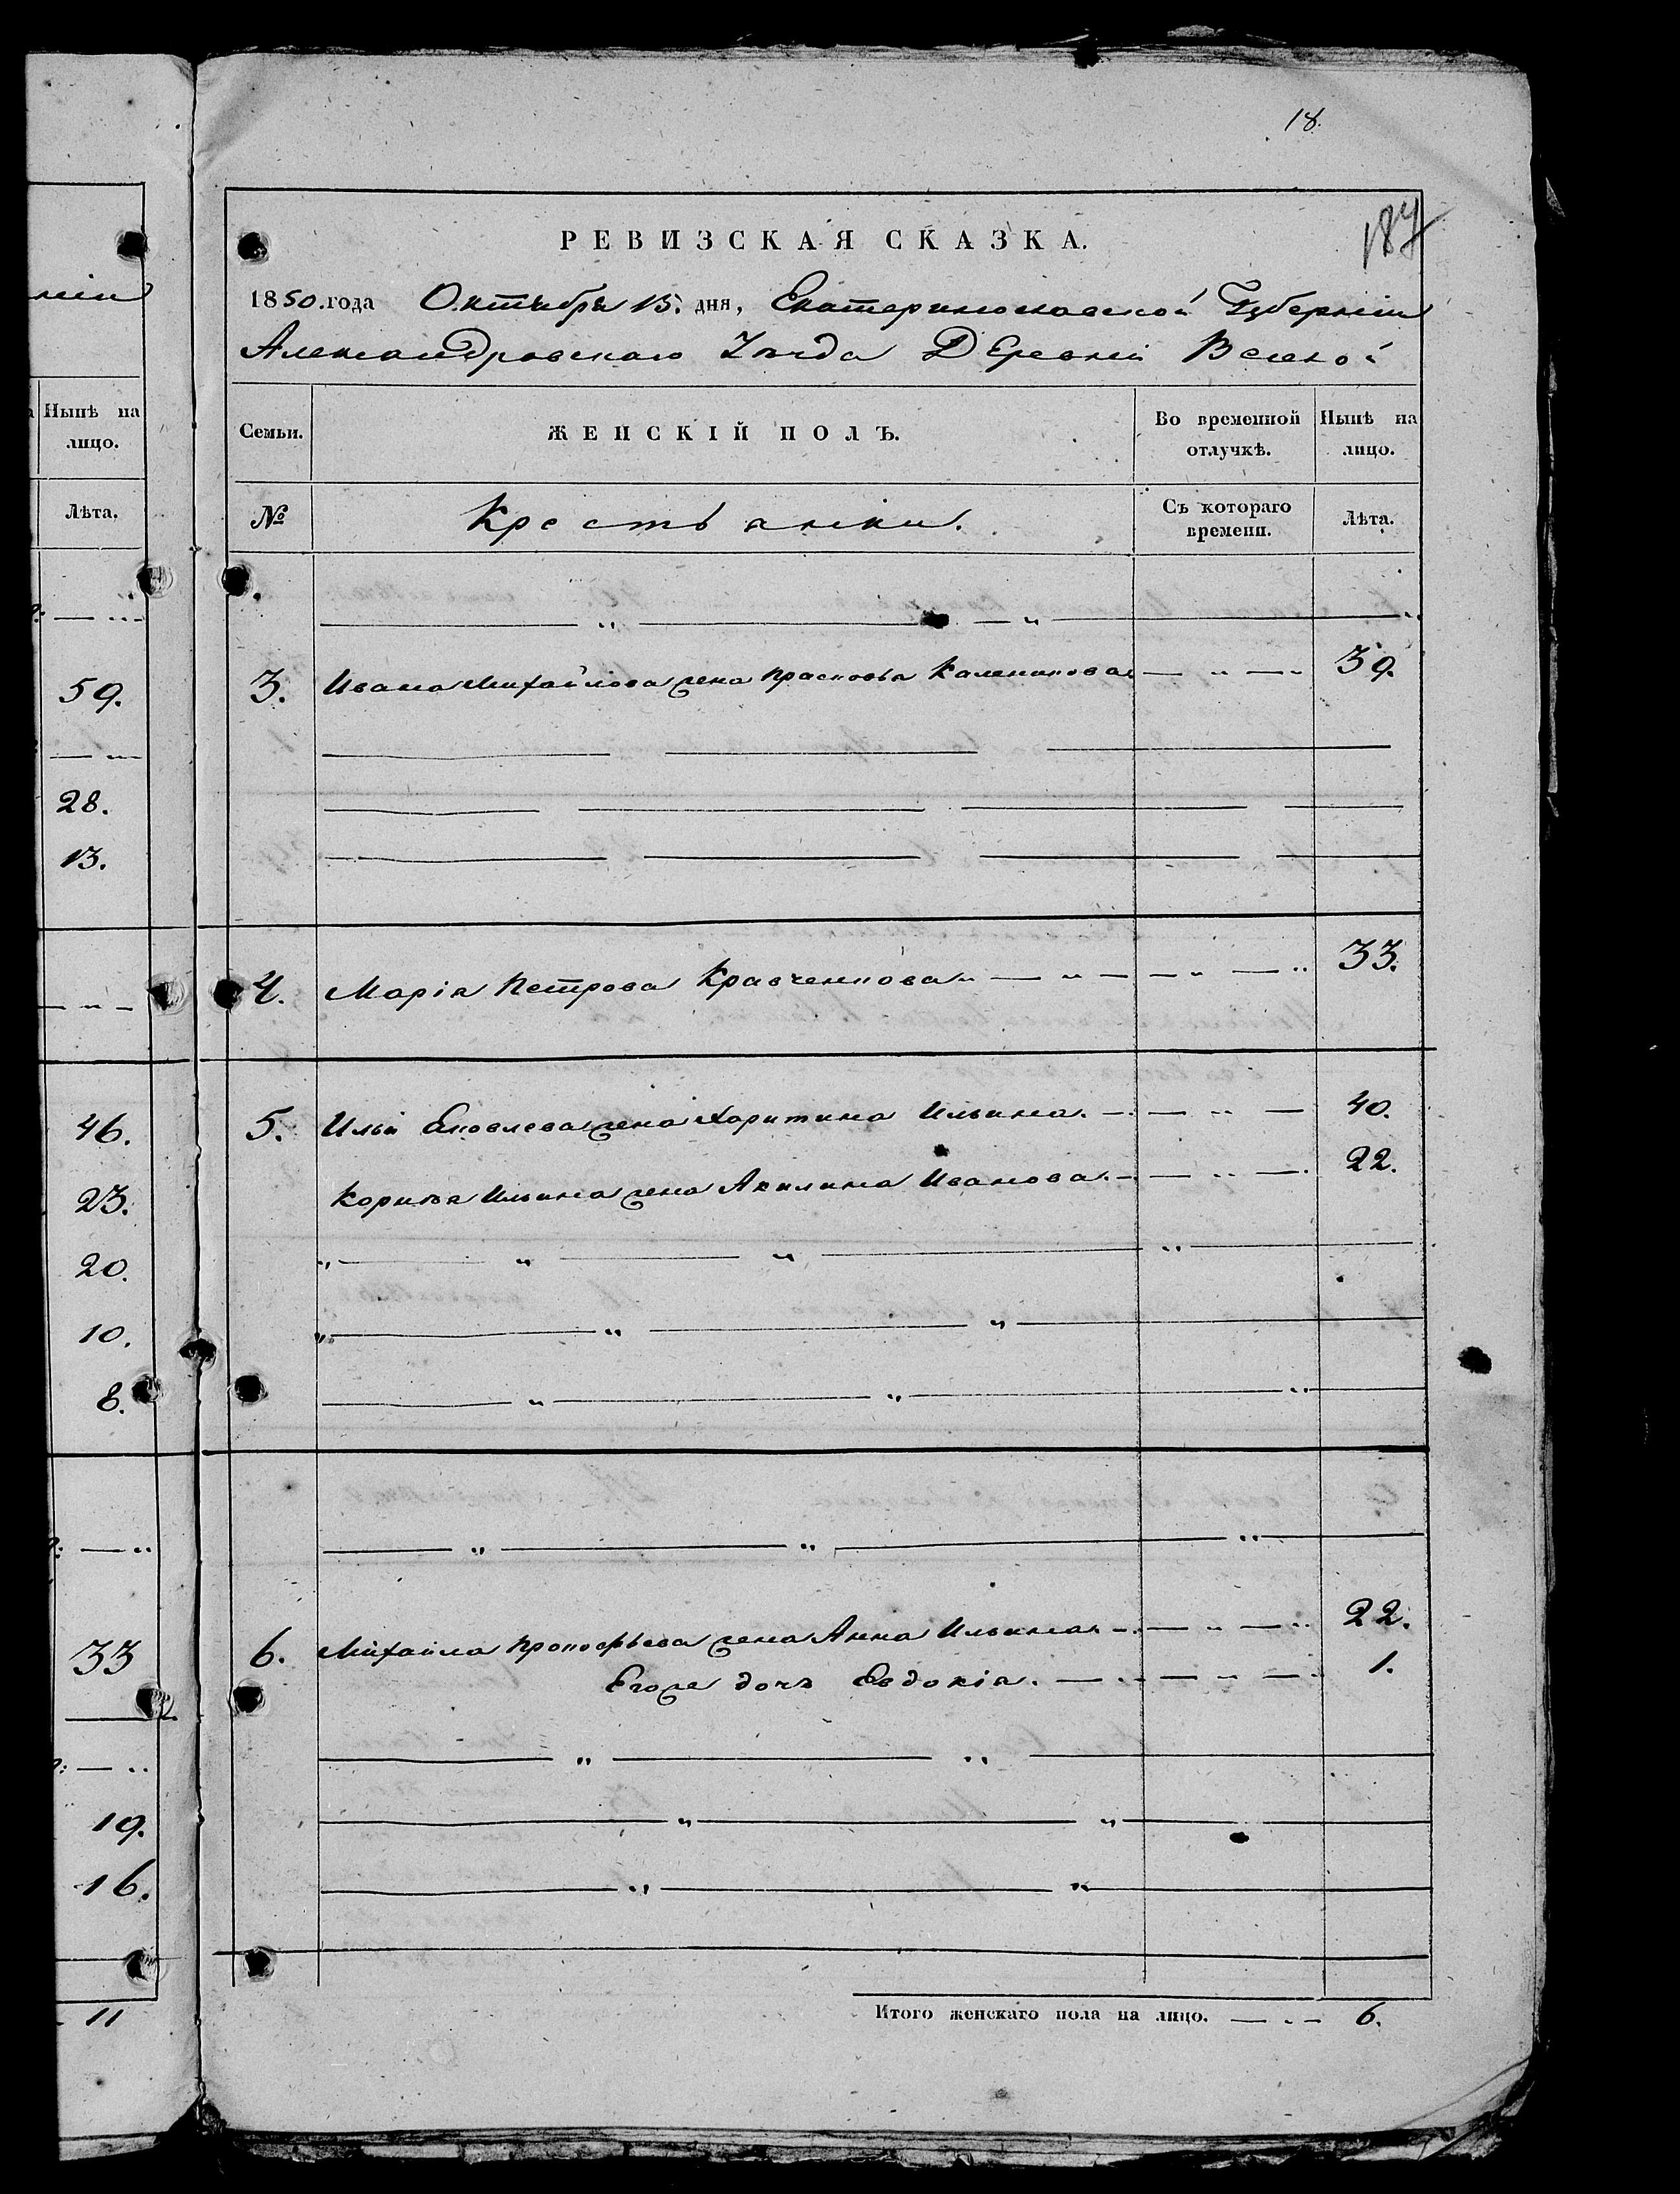 нiи
Нынѣ на
лицо.
Лѣта.
59.
28.
13.
46.
23.
20.
10.
8.
33
19.
16.
11
18.
187
РЕВИЗСКАЯ СКАЗКА.
1850. года Октября 15. дня, Екатеринославской Губернiи
Александровскаго Уѣзда Деревни
Семьи. ЖЕНСКIЙ ПОЛЪ. Во временной отлучкѣ. Нынѣ на лицо.
№ Крестьянки. Съ котораго времени. Лѣта.
3. Ивана Михайлова жена Прасковья Каленикова — " — " 39.
4. Марiя Петрова Кравченкова " — " — — " — " 33.
5. Ильи Яковлева жена Харитина Ильина. — — " — 40.
Корнѣя Ильина жена Акилина Иванова. — — " — 22.
6. Михайла Прокофьева жена Анна Ильина. — — " — " 22.
Егоже дочь Евдокiя. — " — " — 1.
Итого женскаго пола на лицо. — " — 6.